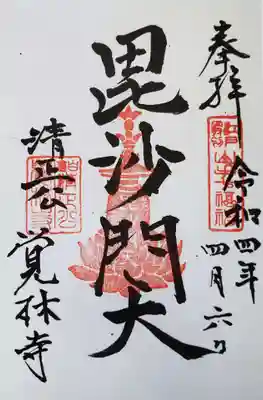 奉拝 令和四年
四月六日
毘沙門天
清正公
覚林寺